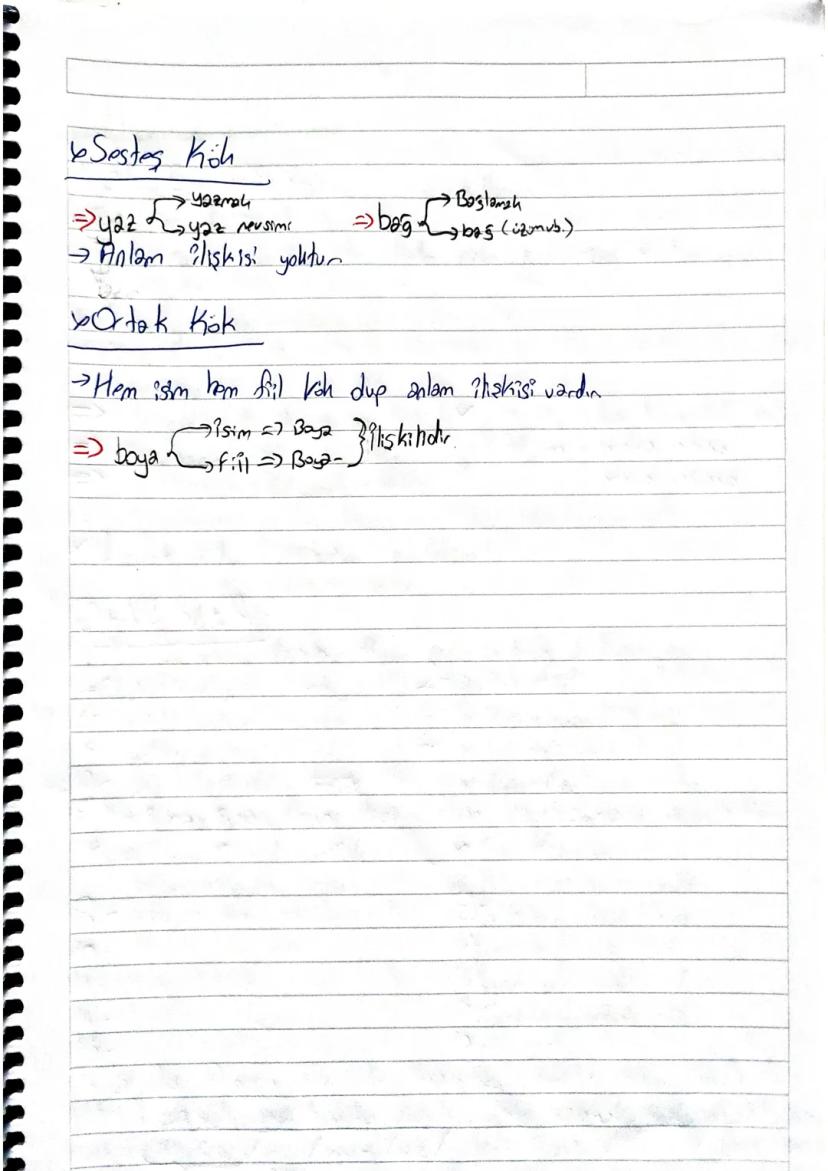 ↳Sesteş Kök
⇒yaz → yazmak ⇒bağ → Bağlamak
↳ yaz mevsimi ↳ bağ (üzüm vb.)
→ Anlam ilişkisi yoktur
↳Ortak Kök
→Hem isim hem fiil kök olup anlam ilişkisi vardır
⇒ boya → isim => Boya } ilişkilidir.
↳ fiil => Boya-